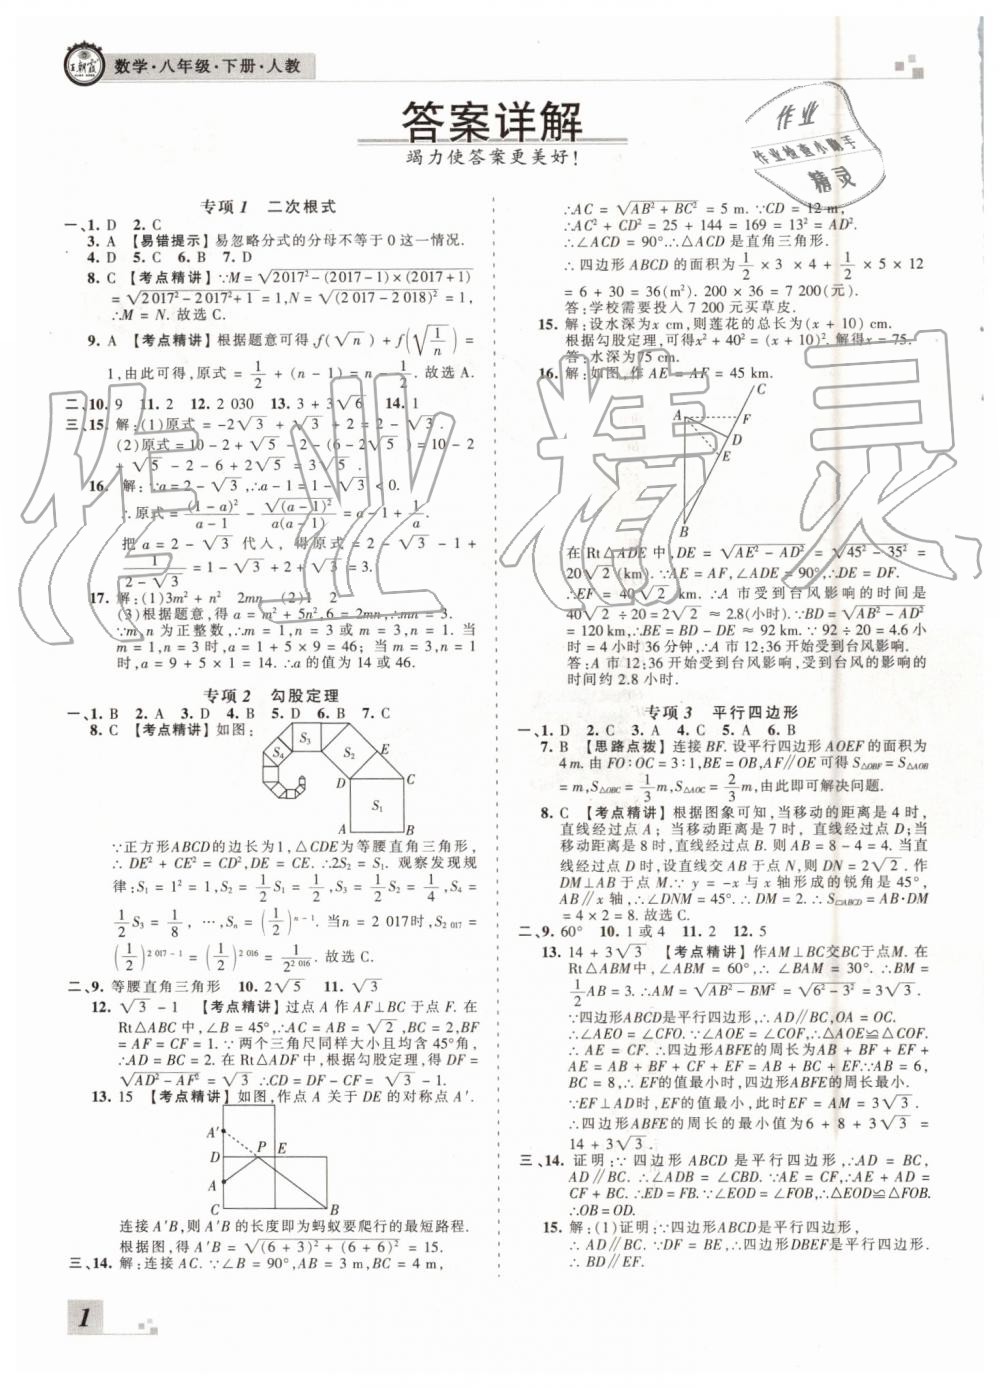 王朝霞
数学·八年级·下册·人教
答案详解
竭力使答案更美好!
作业
作业检查小帮手
精灵
专项1 二次根式
一、1. D 2. C
3. A 【易错提示】易忽略分式的分母不等于0这一情况.
4. D 5. C 6. B 7. D
8. C 【考点精讲】∵M=√(2 017²-(2 017-1)×(2 017+1))
=√(2 017²-2 017²+1)=1,N=√((2 017-2 018)²)=1,
∴M=N.故选C.
9. A 【考点精讲】根据题意可得,f(√n)+f(√(1/n))=
1,由此可得,原式=1/2+(n-1)=n-1/2.故选A.
二、10. 9 11. 2 12. 2 030 13. 3+3√6 14. 1
三、15. 解:(1)原式=-2√3+√3+2=2-√3.
(2)原式=10-2+√5-2-(6-2√5)=10-2
+√5-2-6+2√5=3√5.
16. 解:∵a=2-√3,∴a-1=1-√3<0.
∴原式=(1-a)²/(a-1)-√((a-1)²)/(a(a-1))=a-1+1/a.
把a=2-√3代入,得原式=2-√3-1+
1/(2-√3)=1-√3+2+√3=3.
17. 解:(1)3m²+n² 2mn (2)1 2
(3)根据题意,得a=m²+5n²,6=2mn,∴mn=3.
∵m,n为正整数,∴m=1,n=3或m=3,n=1.当
m=1,n=3时,a=1+5×9=46;当m=3,n=1
时,a=9+5×1=14.∴a的值为14或46.
专项2 勾股定理
一、1. B 2. A 3. D 4. B 5. D 6. B 7. C
8. C 【考点精讲】如图:
S₃
S₄ S₂ E
D C
S₁
A B
∵正方形ABCD的边长为1,△CDE为等腰直角三角形,
∴DE²+CE²=CD²,DE=CE.∴2S₂=S₁.观察发现规
律:S₁=1²=1,S₂=1/2S₁=1/2,S₃=1/2S₂=1/4,S₄=
1/2S₃=1/8,…,Sₙ=(1/2)ⁿ⁻¹.当n=2 017时,S₂ ₀₁₇
=(1/2)^(2 017-1)=(1/2)^(2 016)=1/2^(2 016).故选C.
二、9. 等腰直角三角形 10. 2√5 11. √3
12. √3-1 【考点精讲】过点A作AF⊥BC于点F.在
Rt△ABC中,∠B=45°,∴AC=AB=√2,BC=2,BF
=AF=CF=1.∵两个三角尺同样大小且均含45°角,
∴AD=BC=2.在Rt△ADF中,根据勾股定理,得DF=
√(AD²-AF²)=√3.∴CD=DF-CF=√3-1.
13. 15 【考点精讲】如图,作点A关于DE的对称点A′.
A′
D P E
A
C B
连接A′B,则A′B的长度即为蚂蚁要爬行的最短路程.
根据图,得A′B=√((6+3)²+(6+6)²)=15.
三、14. 解:连接AC.∵∠B=90°,AB=3 m,BC=4 m,
1
∴AC=√(AB²+BC²)=5 m.∵CD=12 m,
∴AC²+CD²=25+144=169=13²=AD².
∴∠ACD=90°.∴△ACD是直角三角形.
∴四边形ABCD的面积为1/2×3×4+1/2×5×12
=6+30=36(m²).200×36=7 200元.
答:学校需要投入7 200元买草皮.
15. 解:设水深为x cm,则莲花的总长为(x+10) cm.
根据勾股定理,可得x²+40²=(x+10)².解得x=75.
答:水深为75 cm.
16. 解:如图,作AE=AF=45 km.
C
A F
D
E
B
在Rt△ADE中,DE=√(AE²-AD²)=√(45²-35²)=
20√2(km).∵AE=AF,∠ADE=90°,∴DE=DF.
∴EF=40√2 km.∴A市受到台风影响的时间是
40√2÷20=2√2≈2.8(小时).∵BD=√(AB²-AD²)
=120 km,∴BE=BD-DE≈92 km.∵92÷20=4.6小
时=4小时36分钟,∴A市12:36开始受到台风影响.
答:A市12:36开始受到台风影响,受到台风的影响的
时间约2.8小时.
专项3 平行四边形
一、1. D 2. C 3. A 4. C 5. A 6. B
7. B 【思路点拨】连接BF.设平行四边形AOEF的面积为
4m.由FO∶OC=3∶1,BE=OB,AF∥OE可得S△OBF=S△AOB
=m,S△OBC=1/3m,S△AOC=2/3m,由此即可解决问题.
8. C 【考点精讲】根据图象可知,当移动的距离是4时,
直线经过点A;当移动距离是7时,直线经过点D;当移
动距离是8时,直线经过点B.∴AB=8-4=4.当直
线经过点D时,设直线交AB于点N,则DN=2√2.作
DM⊥AB于点M.∵y=-x与x轴形成的锐角是45°,
AB∥x轴,∴∠DNM=45°.∴DM=2.∴S▱ABCD=AB·DM
=4×2=8.故选C.
二、9. 60° 10. 1或4 11. 2 12. 5
13. 14+3√3 【考点精讲】作AM⊥BC交BC于点M.在
Rt△ABM中,∠ABM=60°,∴∠BAM=30°.∴BM=
1/2AB=3.∴AM=√(AB²-BM²)=√(6²-3²)=3√3.
∵四边形ABCD是平行四边形,∴AD∥BC,OA=OC.
∴∠AEO=∠CFO.∵∠AOE=∠COF,∴△AOE≌△COF.
∴AE=CF.∴四边形ABFE的周长为AB+BF+EF+
AE=AB+BF+CF+EF=AB+BC+EF.∵AB=6,
BC=8,∴EF的值最小时,四边形ABFE的周长最小.
∵EF⊥AD时,EF的值最小,此时EF=AM=3√3.
∴四边形ABFE的周长的最小值为6+8+3√3=
14+3√3.
三、14. 证明:∵四边形ABCD是平行四边形,∴AD=BC,
AD∥BC.∴∠ADB=∠CBD.∵AE=CF,∴AE+AD=
CF+BC.∴ED=FB.∵∠EOD=∠FOB,∴△EOD≌△FOB.
∴OB=OD.
15. 解:(1)证明:∵四边形ABCD是平行四边形,
∴AD∥BC.∵DF=BE,∴四边形DBEF是平行四边形.
∴BD∥EF.
作业精灵